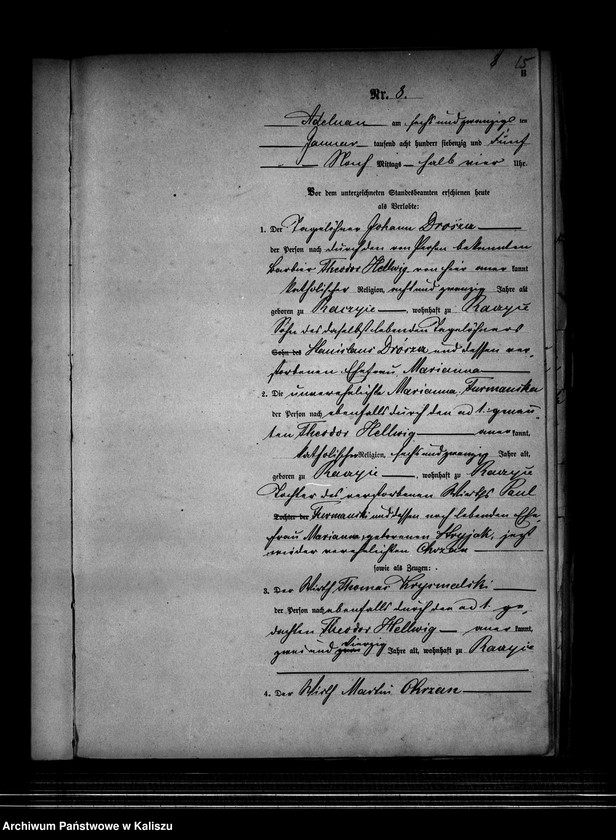 8 15
B
Nr. 8.
Adelnau am sechs und zwanzigs ten
Januar tausend acht hundert siebenzig und fünf
Nach Mittags halb vier Uhr.
Vor dem unterzeichneten Standesbeamten erschienen heute
als Verlobte:
1. Der Tagelöhner Johann Drósza
der Person nach durch den von Person bekannten
Barbier Theodor Hellwig von hier aner kannt
katholischer Religion, acht und zwanzig Jahre alt
geboren zu Raczyce, wohnhaft zu Raczyce
Sohn des daselbst lebenden Tagelöhners
Sohn des Stanislaus Drósza und dessen ver-
storbenen Ehefrau Marianna
2. Die unverehelichte Marianna Furmanska
der Person nach ebenfalls durch den ad 1. genann-
ten Theodor Hellwig aner kannt,
katholischer Religion, sechs und zwanzig Jahre alt,
geboren zu Raczyce, wohnhaft zu Raczyce
Tochter des verstorbenen Wirths Paul
Tochter der Furmanski und dessen noch lebenden Ehe-
frau Marianna, geborenen jetzt
wieder verehelichten Chrzan
sowie als Zeugen:
3. Der Wirth Thomas
der Person nach ebenfalls durch den ad 1. ge-
dachten Theodor Hellwig aner kannt,
zwei und vierzig Jahre alt, wohnhaft zu Raczyce
4. Der Wirth Martin Chrzan
Archiwum Państwowe w Kaliszu